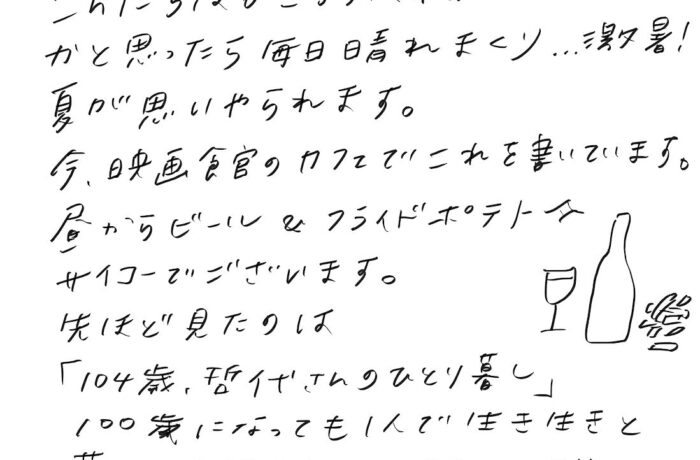 かと思ったら毎日晴れまくり...激暑!
夏が思いやられます。
今、映画食官のカフェでこれを書いています。
昼からビール&フライドポテト☆
サイコーでございます。
先ほど見たのは
「104歳、哲代さんのひとり暮し」
100歳になっても1人で生き生きと